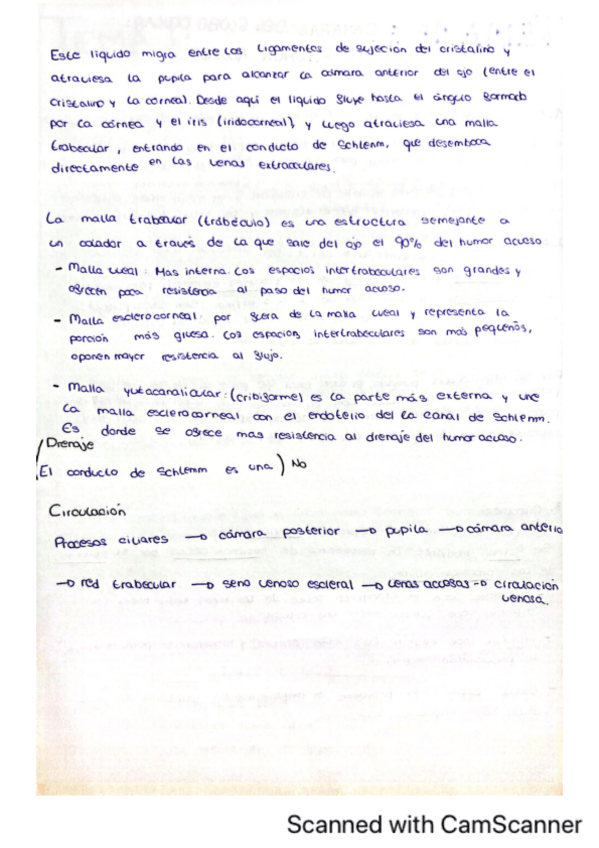 Este líquido migra entre los ligamentos de sujeción del cristalino y
atraviesa la pupila para alcanzar la cámara anterior del ojo (entre el
cristalino y la córnea). Desde aquí el líquido fluye hasta el ángulo formado
por la córnea y el iris (iridocorneal), y luego atraviesa una malla
trabecular, entrando en el conducto de Schlemm, que desemboca
directamente en las venas extraoculares.
La malla trabecular (trabéculo) es una estructura semejante a
un colador a través de la que sale del ojo el 90% del humor acuoso:
- Malla uveal: Mas interna. Los espacios intertrabeculares son grandes y
ofrecen poca resistencia al paso del humor acuoso.
- Malla esclerocorneal: por fuera de la malla uveal y representa la
porción más gruesa. Los espacios intertrabeculares son mas pequeños,
oponen mayor resistencia al flujo.
- Malla yuxtacanalicular: (cribiforme) es la parte más externa y une
la malla esclerocorneal con el endotelio del la canal de Schlemm.
Es donde se ofrece mas resistencia al drenaje del humor acuoso.
Drenaje
(El conducto de Schlemm es una) No
Circulación
Procesos ciliares → cámara posterior → pupila → cámara anterio
→ red trabecular → seno venoso escleral → venas acuosas → circulación
venosa.
Scanned with CamScanner